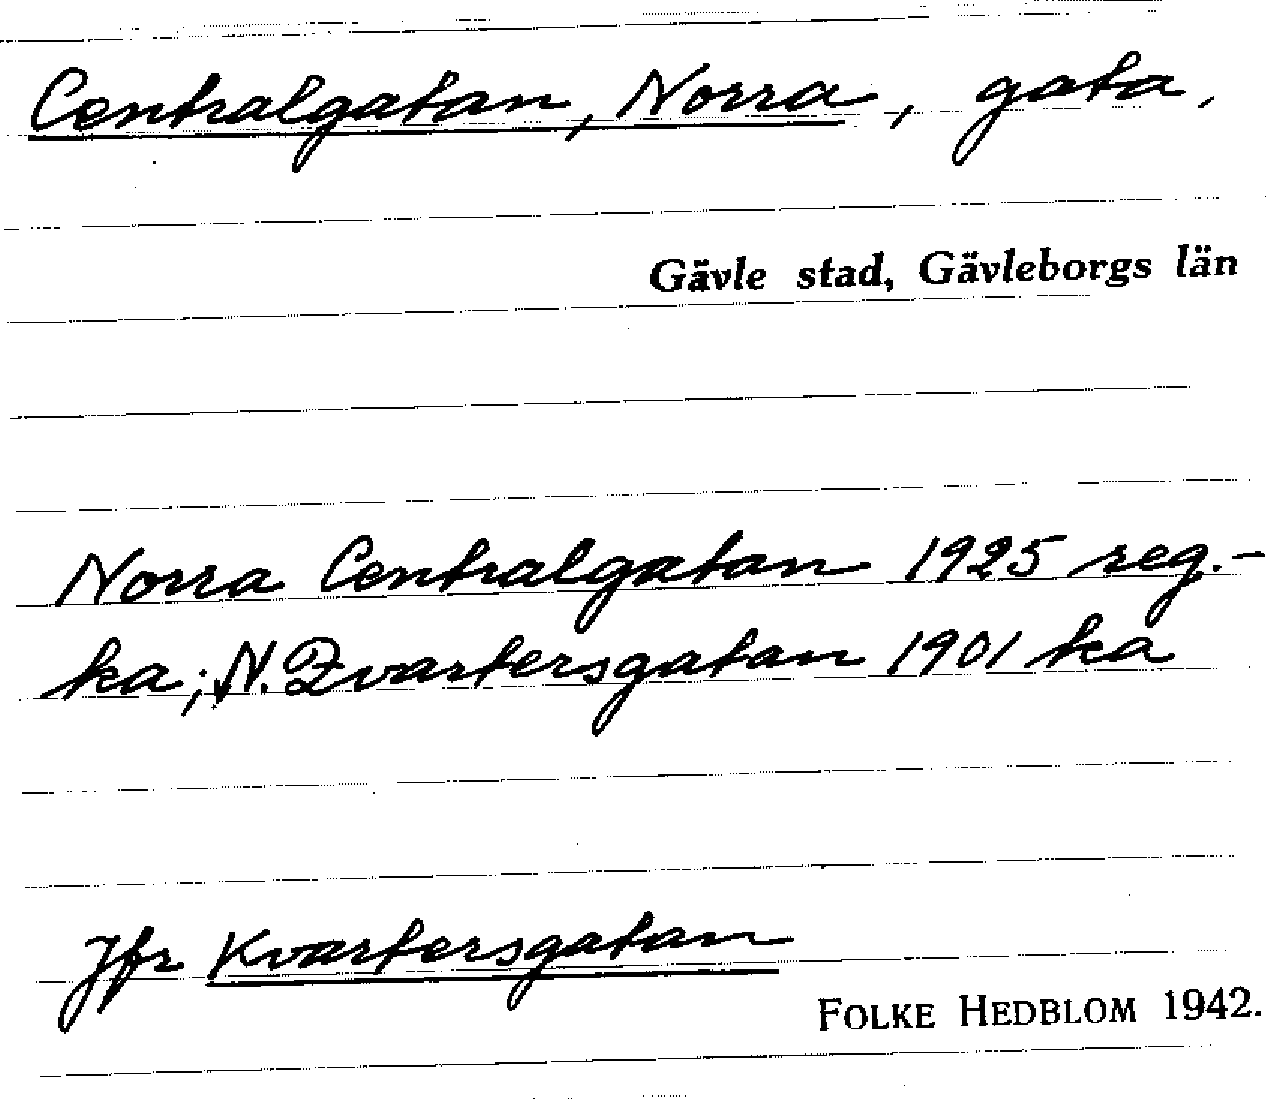 Centralgatan, Norra, gata,
Gävle stad, Gävleborgs län
Norra Centralgatan 1925 reg.-
ka; N. Qvartersgatan 1901 ka
Jfr Kvartersgatan
FOLKE HEDBLOM 1942.